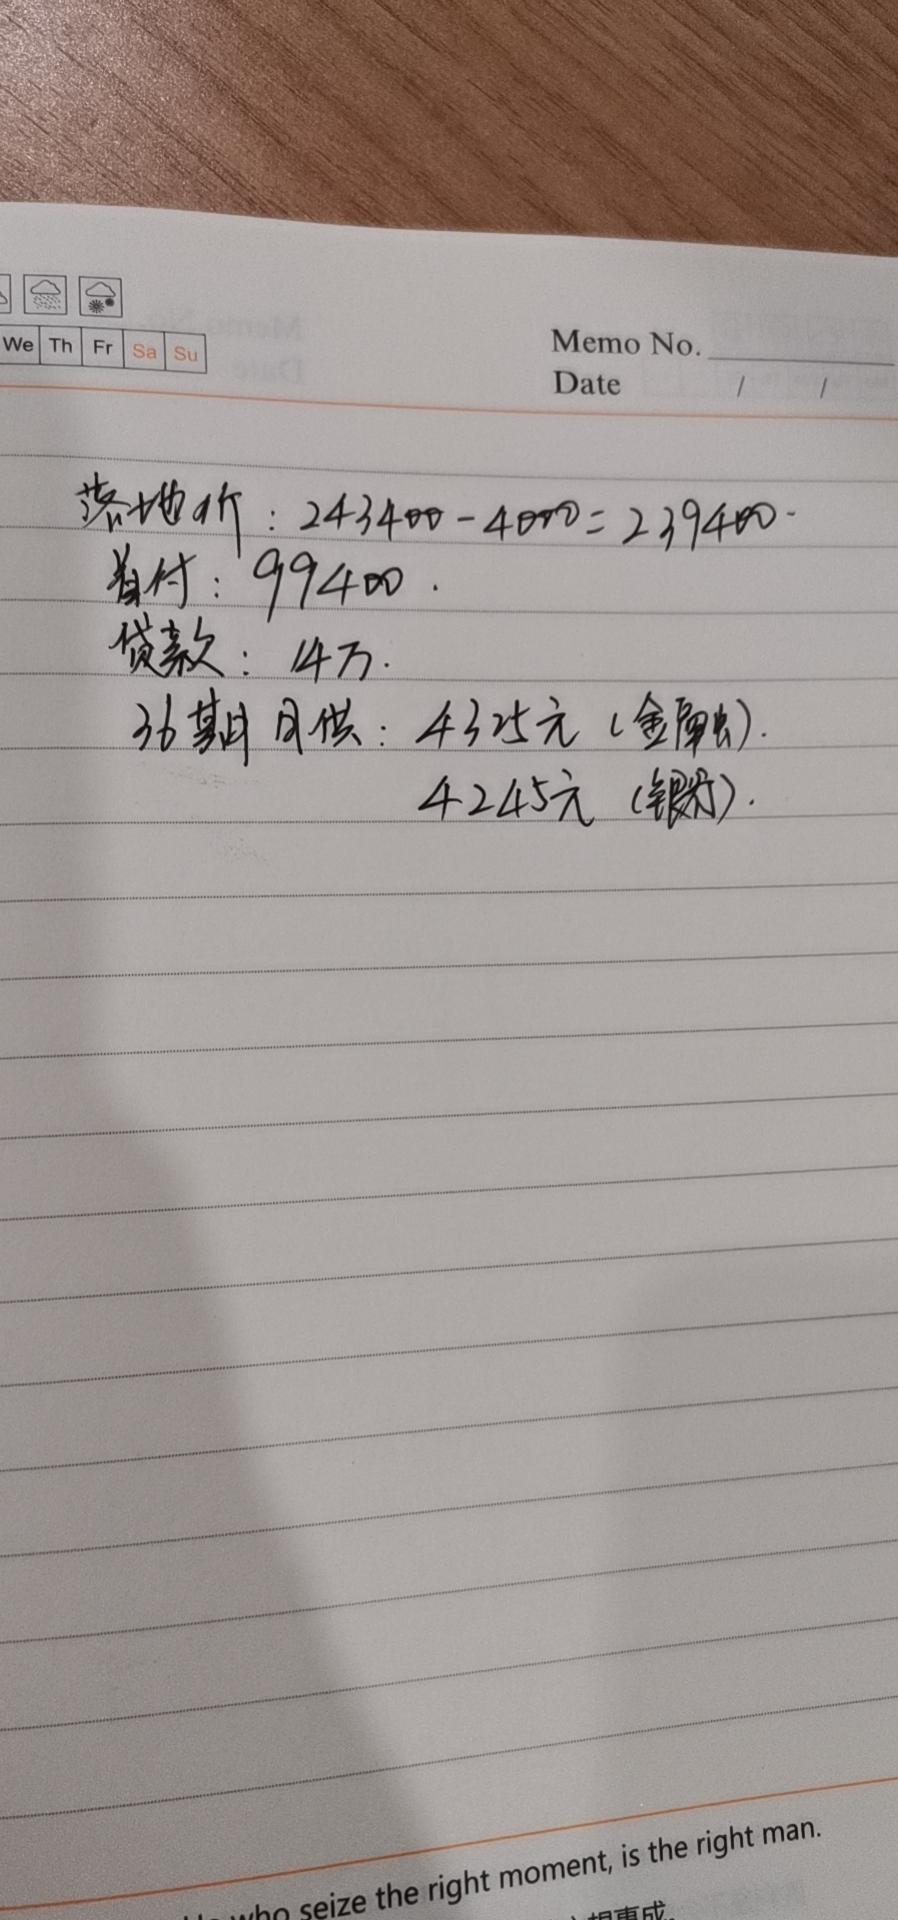 We Th Fr Sa Su
Memo No.
Date / /
落地价：243400-4000=239400.
首付：99400.
贷款：14万.
36期月供：4325元（金融）.
4245元（银行）.
who seize the right moment, is the right man.
想事成.